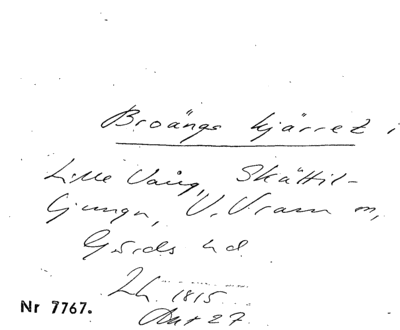 Broängs kjärret i
Lille Vång, Skättil-
ljunga, V. Vram m,
Gärds hd
Lh. 1815
Akt 27
Nr 7767.